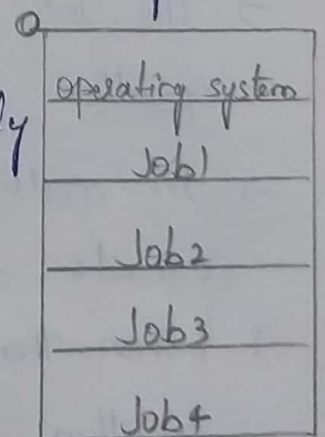 0
Operating system
Job1
Job2
Job3
Job4